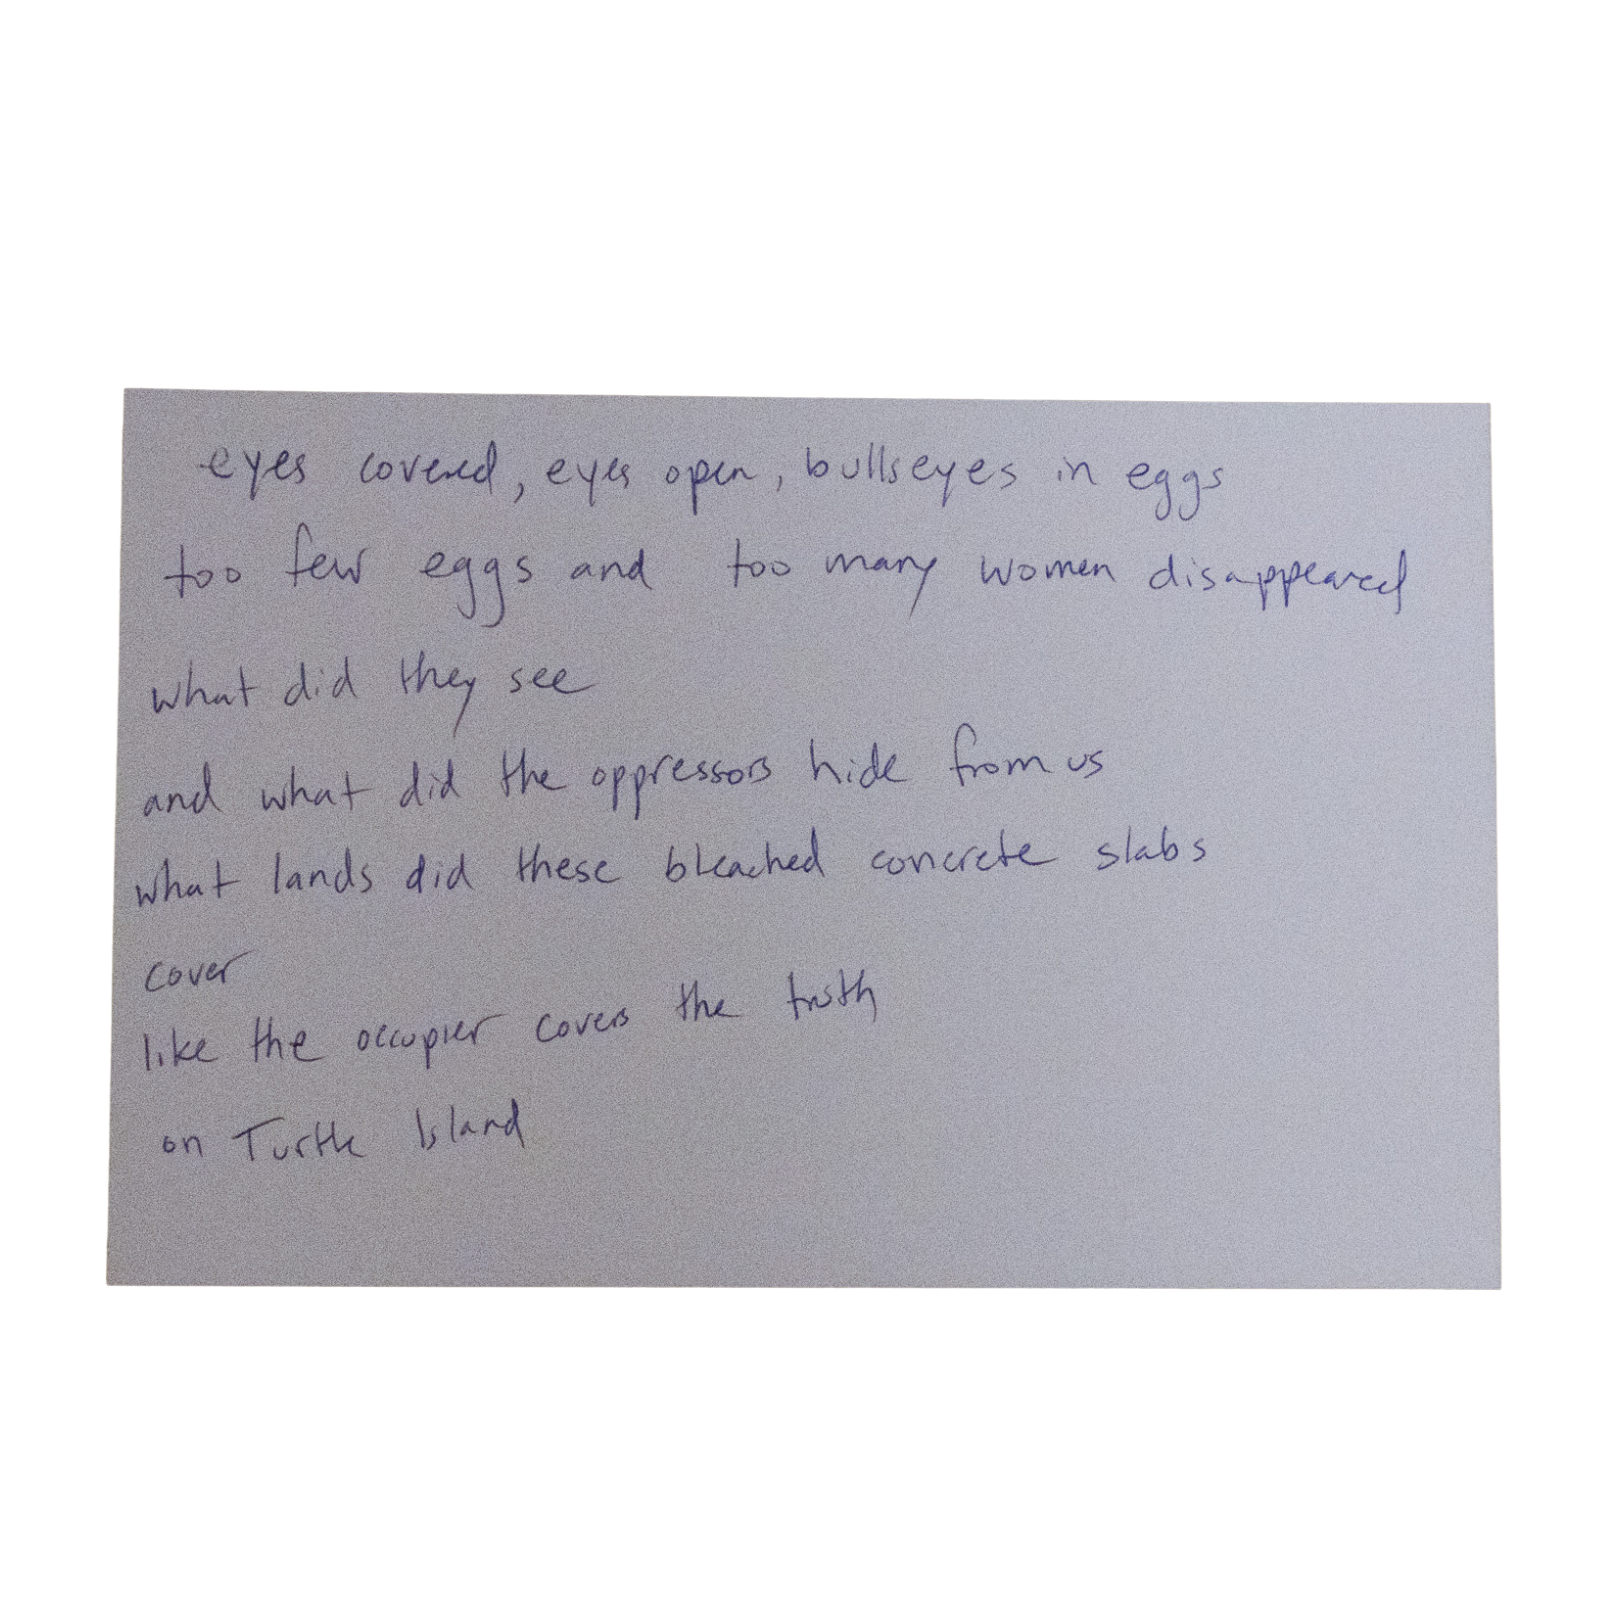 eyes covered, eyes open, bullseyes in eggs
too few eggs and too many women disappeared
what did they see
and what did the oppressors hide from us
what lands did these bleached concrete slabs
cover
like the occupier covers the truth
on Turtle Island